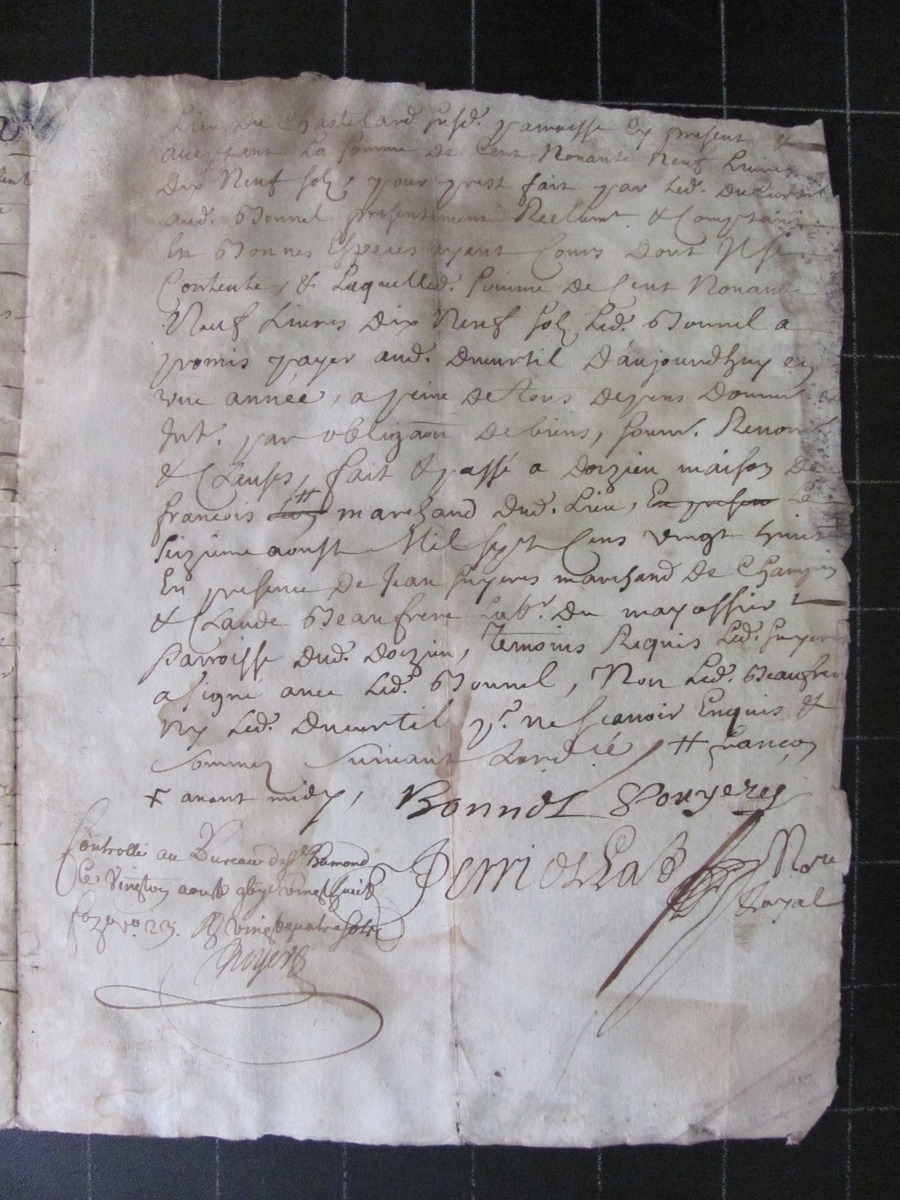 Lieu du Chastelard susd. parroisse Cy present &
acceptant La somme de Cent Nonante Neuf Livres
Dix Neuf solz, pour prest fait par Led. Ducurtil
aud. Bonnel presentement Reellemt. & Comptant
En Bonnes Especes ayant Cours Dont Il se
Contente, & Laquelled. somme de Cent Nonante
Neuf Livres Dix Neuf solz Led. Bonnel a
promis payer aud. Ducurtil D'aujourdhuy en
une année, a peine de Tous depens Domm.
Int. par obligaon de biens, soum. Renon
& Clauses, fait & passé a doizieu maison de
francois marchand dud. Lieu, En presen Le
Seizieme aoust Mil sept Cens vingt huit
En presence de Jean
marchand de
& Claude Beaufrere Labr. du
parroisse dud. doizieu, Temoins Requis Led.
a signé avec Led. Bonnel, Non Led. Beaufrere
Ny Led. Ducurtil pr. ne scavoir Enquis &
Sommez suivant Lordce # francois
+ avant midy,
Controllé au Bureau de St. Chamond
Ce Vingt aoust vingt huit
fo 23. R vingt quatre solz
Nore
Royal